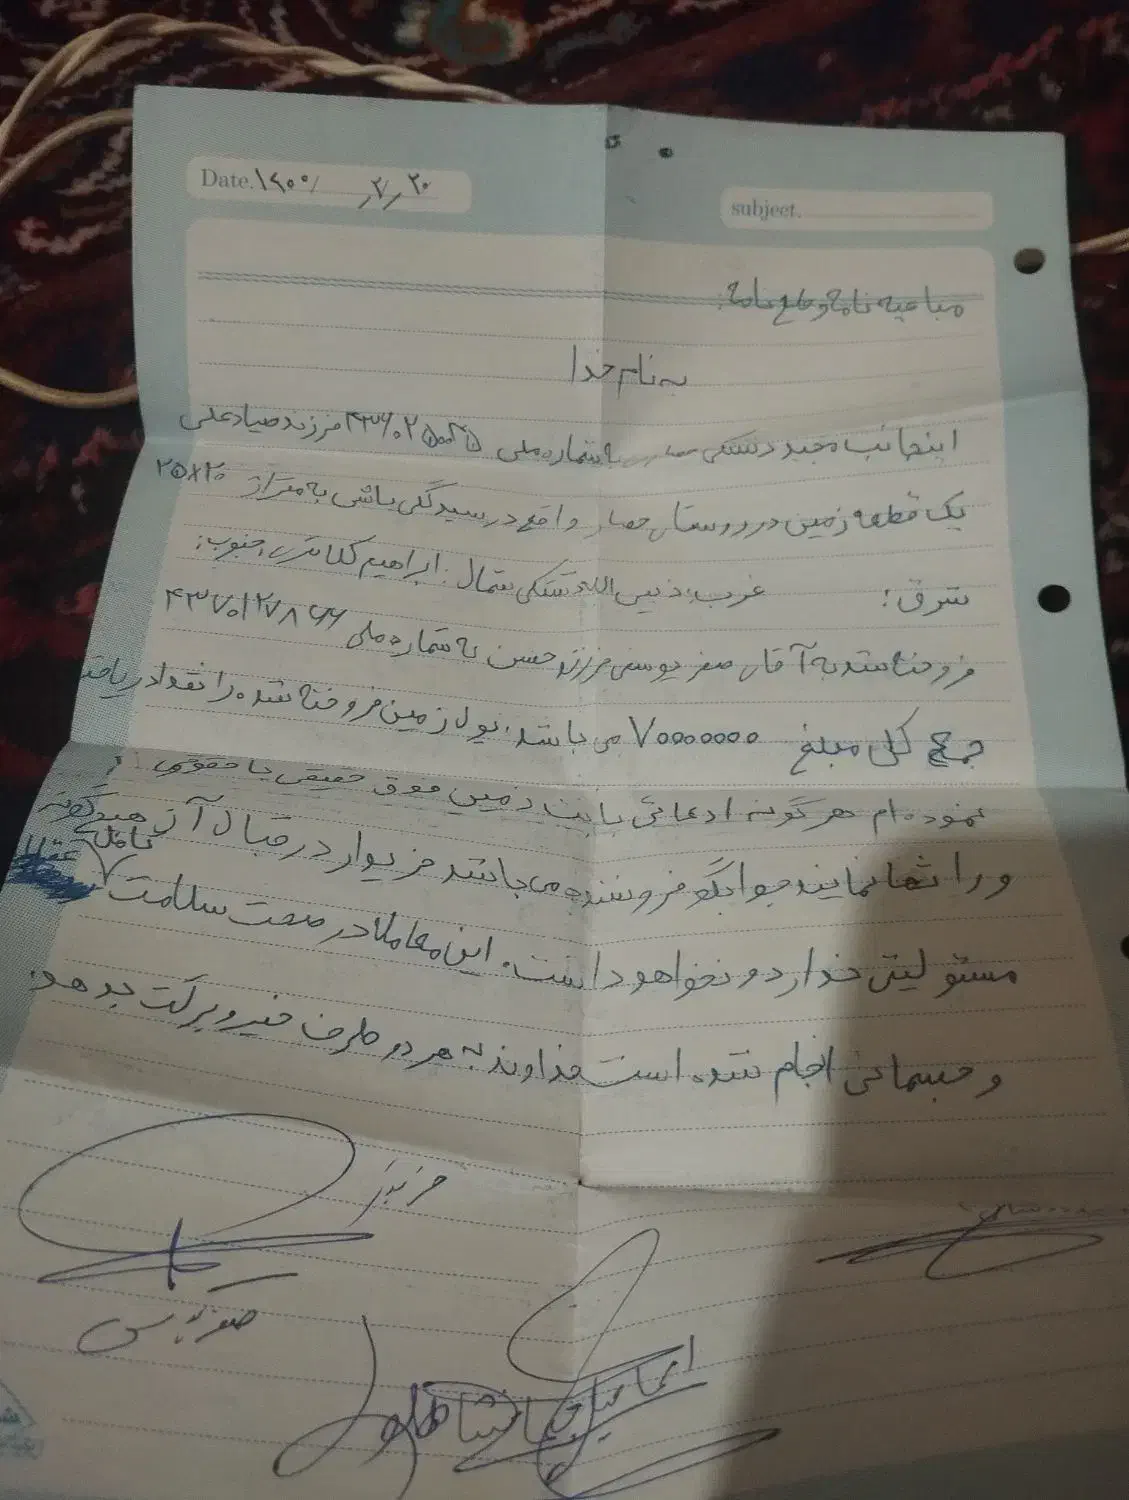 Date. ۱۴۰۰/ ۲/ ۲۰
subject.
مبایعه نامه و نامه:
به نام خدا
اینجانب مجید دشتکی به شماره ملی فرزند صیاد علی
یک قطعه زمین در روستای حصار واقع در سیدگلی باشی به متراژ ۲۵۸۲۰
شرق: غرب: ذبیح الله دشتکی شمال: ابراهیم کلانتری جنوب:
فروخته شد به آقای صفر یوسفی فرزند حسن به شماره ملی ۴۳۷۰۱۲۷۸۶۶
جمع کل مبلغ ۷۰۰۰۰۰۰۰ می باشد. پول زمین فروخته شده را نقدا دریافت
نموده ام هر گونه ادعائی بابت زمین فوق حقیقی یا حقوقی
و را نمایند جوابگو فروشنده می باشد خریدار در قبال آن هیچگونه
مسئولیتی ندارد و نخواهد داشت. این معامله در صحت سلامت کامل عقلی
و جسمانی انجام شده است خداوند به هر دو طرف خیر و برکت بدهد.
خریدار
صفر یوسفی
اسماعیل